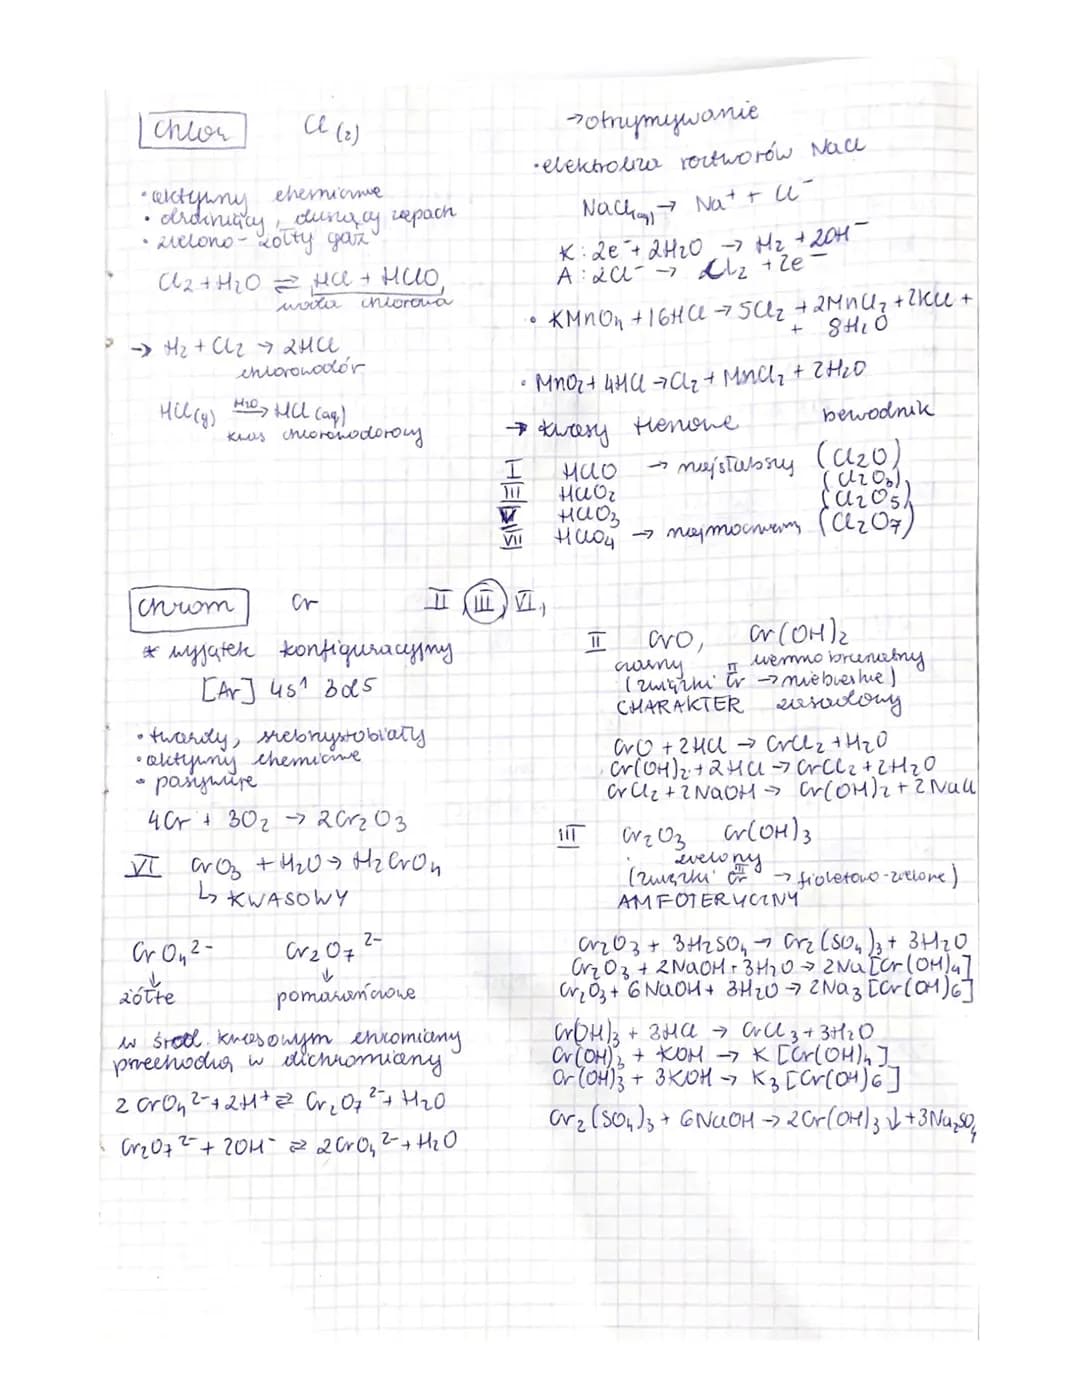 Chlor Cl (2)
• aktywny chemicznie
• drażniący, duszący zapach
• zielono-żółty gaz
Cl2 + H2O ⇌ HCl + HClO,
woda chlorowa
→ H2 + Cl2 → 2HCl
chlorowodór
HCl(g) H2O→ HCl(aq)
kwas chlorowodorowy
→ otrzymywanie
• elektroliza roztworów NaCl
NaCl(aq) → Na+ + Cl-
K: 2e- + 2H2O → H2 + 2OH-
A: 2Cl- → Cl2 + 2e-
• KMnO4 + 16HCl → 5Cl2 + 2MnCl2 + 2KCl +
+ 8H2O
• MnO2 + 4HCl → Cl2 + MnCl2 + 2H2O
→ kwasy tlenowe bezwodnik
I HClO → najsłabszy (Cl2O)
III HClO2 (Cl2O3)
V HClO3 (Cl2O5)
VII HClO4 → najmocniejszy (Cl2O7)
chrom Cr II III VI,
* wyjątek konfiguracyjny
[Ar] 4s1 3d5
• twardy, srebrzystobiały
• aktywny chemicznie
• pasywuje
4Cr + 3O2 → 2Cr2O3
VI CrO3 + H2O → H2CrO4
↳ KWASOWY
CrO4 2- Cr2O7 2-
↓ ↓
żółte pomarańczowe
w środ. kwasowym chromiany
przechodzą w dichromiany
2 CrO4 2- + 2H+ ⇌ Cr2O7 2- + H2O
Cr2O7 2- + 2OH- ⇌ 2CrO4 2- + H2O
II CrO, Cr(OH)2
czarny ciemno brunatny
(związki Cr II → niebieskie)
CHARAKTER zasadowy
CrO + 2HCl → CrCl2 + H2O
Cr(OH)2 + 2HCl → CrCl2 + 2H2O
CrCl2 + 2NaOH → Cr(OH)2 + 2NaCl
III Cr2O3 Cr(OH)3
zielony
(związki Cr III → fioletowo-zielone)
AMFOTERYCZNY
Cr2O3 + 3H2SO4 → Cr2(SO4)3 + 3H2O
Cr2O3 + 2NaOH + 3H2O → 2Na[Cr(OH)4]
Cr2O3 + 6NaOH + 3H2O → 2Na3[Cr(OH)6]
Cr(OH)3 + 3HCl → CrCl3 + 3H2O
Cr(OH)3 + KOH → K[Cr(OH)4]
Cr(OH)3 + 3KOH → K3[Cr(OH)6]
Cr2(SO4)3 + 6NaOH → 2Cr(OH)3↓ + 3Na2SO4